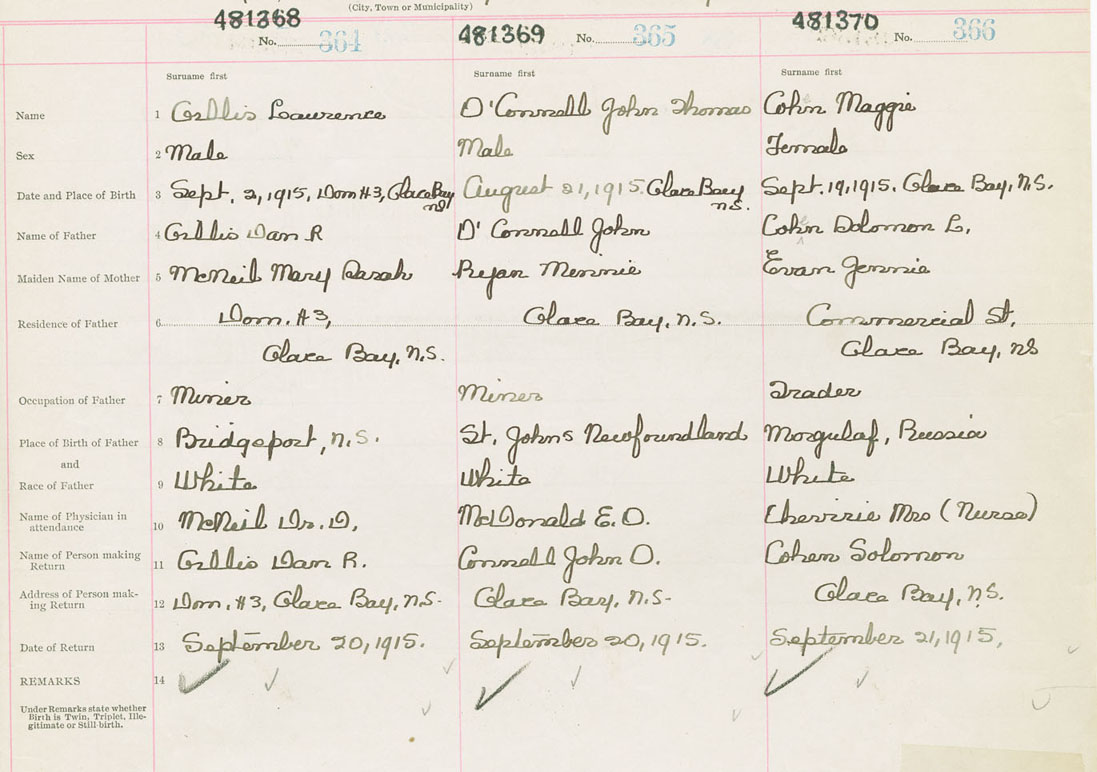 (City, Town or Municipality)
481368 481369 481370
No. 364 No. 365 No. 366
Surname first Surname first Surname first
Name 1 Gillis Lawrence O'Connell John Thomas Cohn Maggie
Sex 2 Male Male Female
Date and Place of Birth 3 Sept. 2, 1915, Dom #3, Glace Bay NS August 21, 1915. Glace Bay N.S. Sept. 19, 1915. Glace Bay, N.S.
Name of Father 4 Gillis Dan R O'Connell John Cohn Solomon L.
Maiden Name of Mother 5 McNeil Mary Sarah Ryan Minnie Evan Jennie
Residence of Father 6 Dom. #3, Glace Bay, N.S. Commercial St,
Glace Bay, N.S. Glace Bay, NS
Occupation of Father 7 Miner Miner Trader
Place of Birth of Father 8 Bridgeport, N.S. St. Johns Newfoundland Morgulaf, Russia
and
Race of Father 9 White White White
Name of Physician in
attendance 10 McNeil Dr. D. McDonald E. O. Mrs (Nurse)
Name of Person making
Return 11 Gillis Dan R. Connell John O. Cohen Solomon
Address of Person mak-
ing Return 12 Dom. #3, Glace Bay, N.S. Glace Bay, N.S. Glace Bay, N.S.
Date of Return 13 September 20, 1915. September 20, 1915. September 21, 1915.
REMARKS 14
Under Remarks state whether
Birth is Twin, Triplet, Ille-
gitimate or Still-birth.